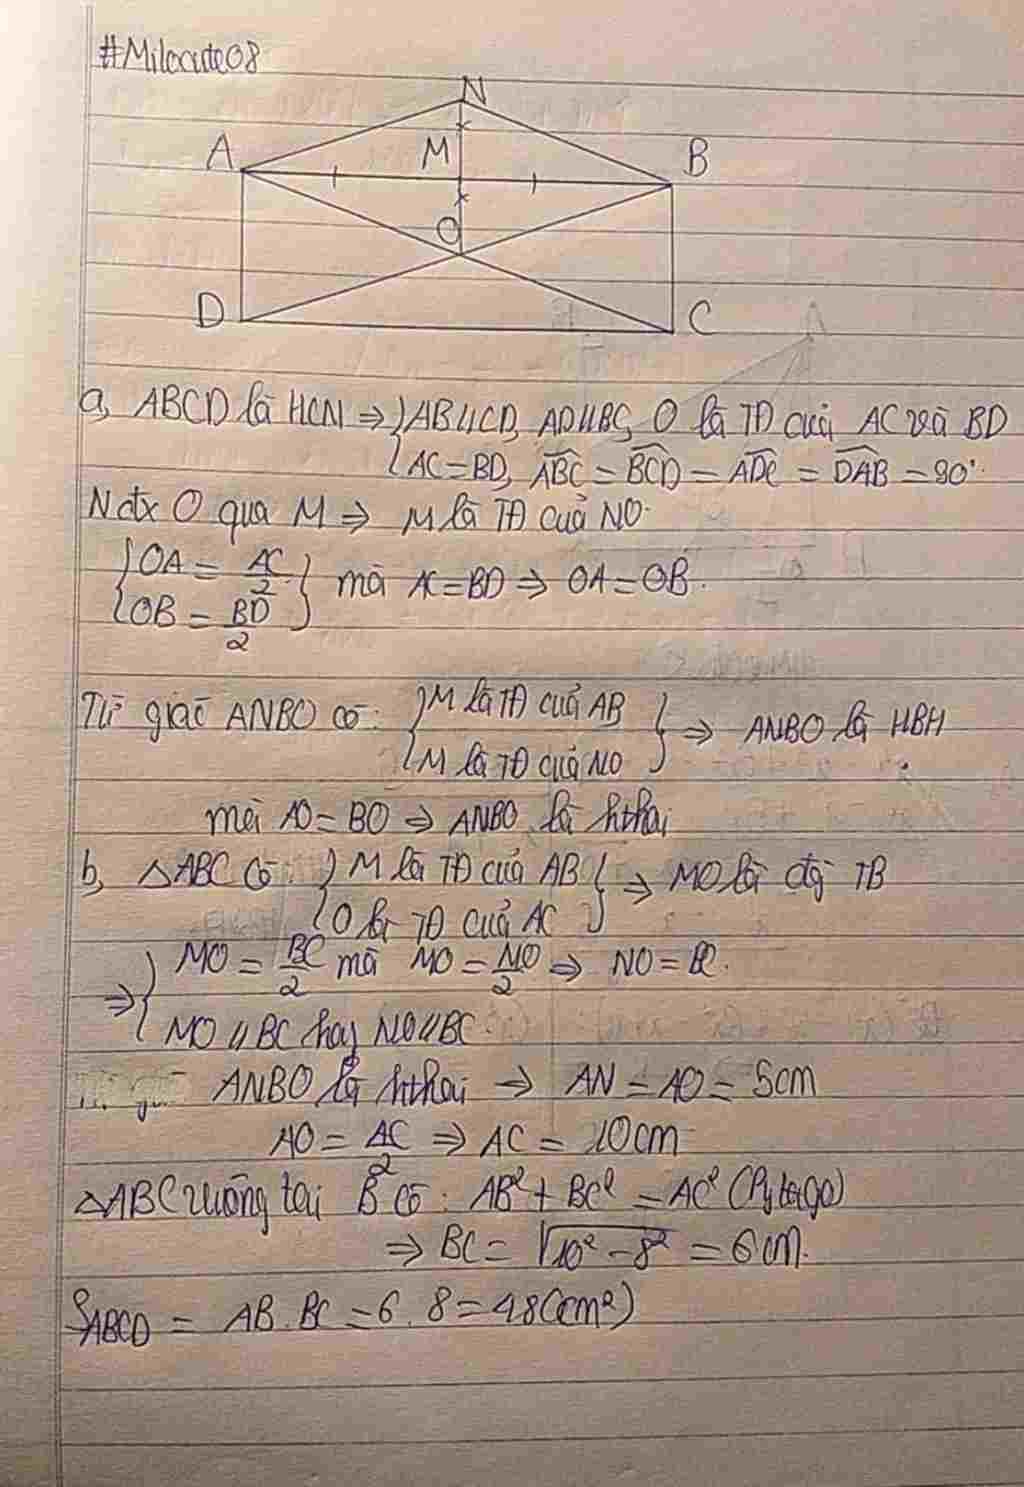 #Milocute08
N
A M B
O
D C
a, ABCD là HCN ⇒ { AB//CD, AD//BC, O là TĐ của AC và BD
{ AC = BD, ABC = BCD = ADC = DAB = 90°.
N đtx O qua M ⇒ M là TĐ của NO.
{ OA = AC/2 } mà AC = BD ⇒ OA = OB.
{ OB = BD/2 }
Tứ giác ANBO có: { M là TĐ của AB } ⇒ ANBO là HBH
{ M là TĐ của NO }
mà AO = BO ⇒ ANBO là hthoi
b, △ABC có: { M là TĐ của AB } ⇒ MO là đg TB
{ O là TĐ của AC }
⇒ { MO = BC/2 mà MO = NO/2 ⇒ NO = BC.
{ MO // BC hay NO // BC.
ANBO là hthoi ⇒ AN = AO = 5cm
AO = AC/2 ⇒ AC = 10cm
△ABC vuông tại B có: AB² + BC² = AC² (Pytago)
⇒ BC = √10² - 8² = 6cm.
SABCD = AB . BC = 6 . 8 = 48(cm²)